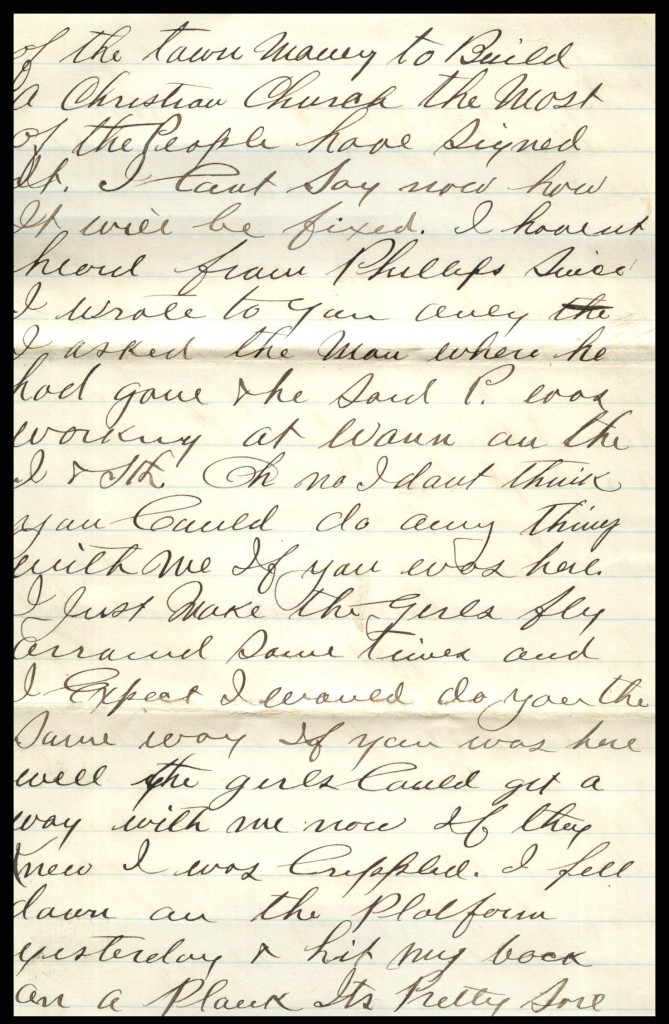 of the town Money to Build
a Christian Church the Most
of the People have signed
It. I Cant Say now how
It will be fixed. I havent
heard from Phillips Since
I wrote to you only the
I asked the Man where he
had gone & he Said P. was
working at Wann on the
I & St L Oh no I dont think
you Could do any thing
with Me If you was here.
I Just Make the Girls fly
arround Some times and
I Expect I would do you the
Same way If you was here
well the girls Could get a
way with me now If they
Knew I was Crippled. I fell
down on the Platform
yesterday & hit my back
on a Plank Its Pretty Sore